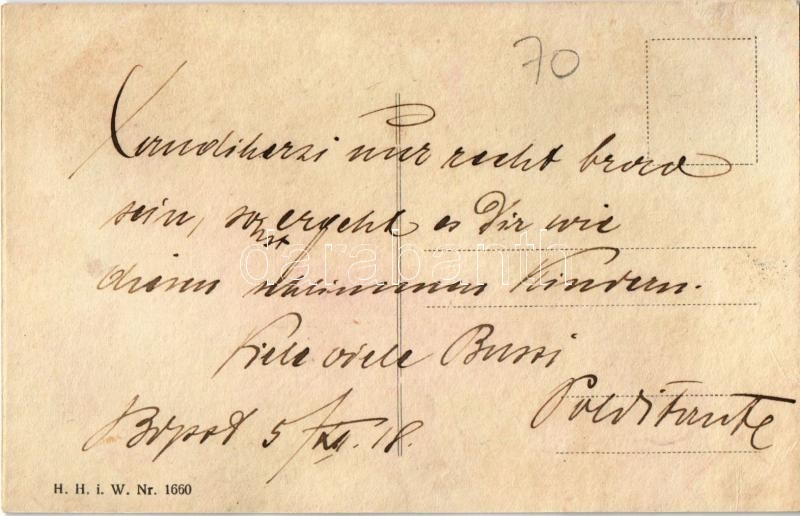 70
Xandiherzi nur recht brav
sein, sonst ergeht es Dir wie
diesen schlimmen Kindern.
Viele viele Bussi
Polditante
Bpest 5/XII. 18.
H. H. i. W. Nr. 1660
darabanth